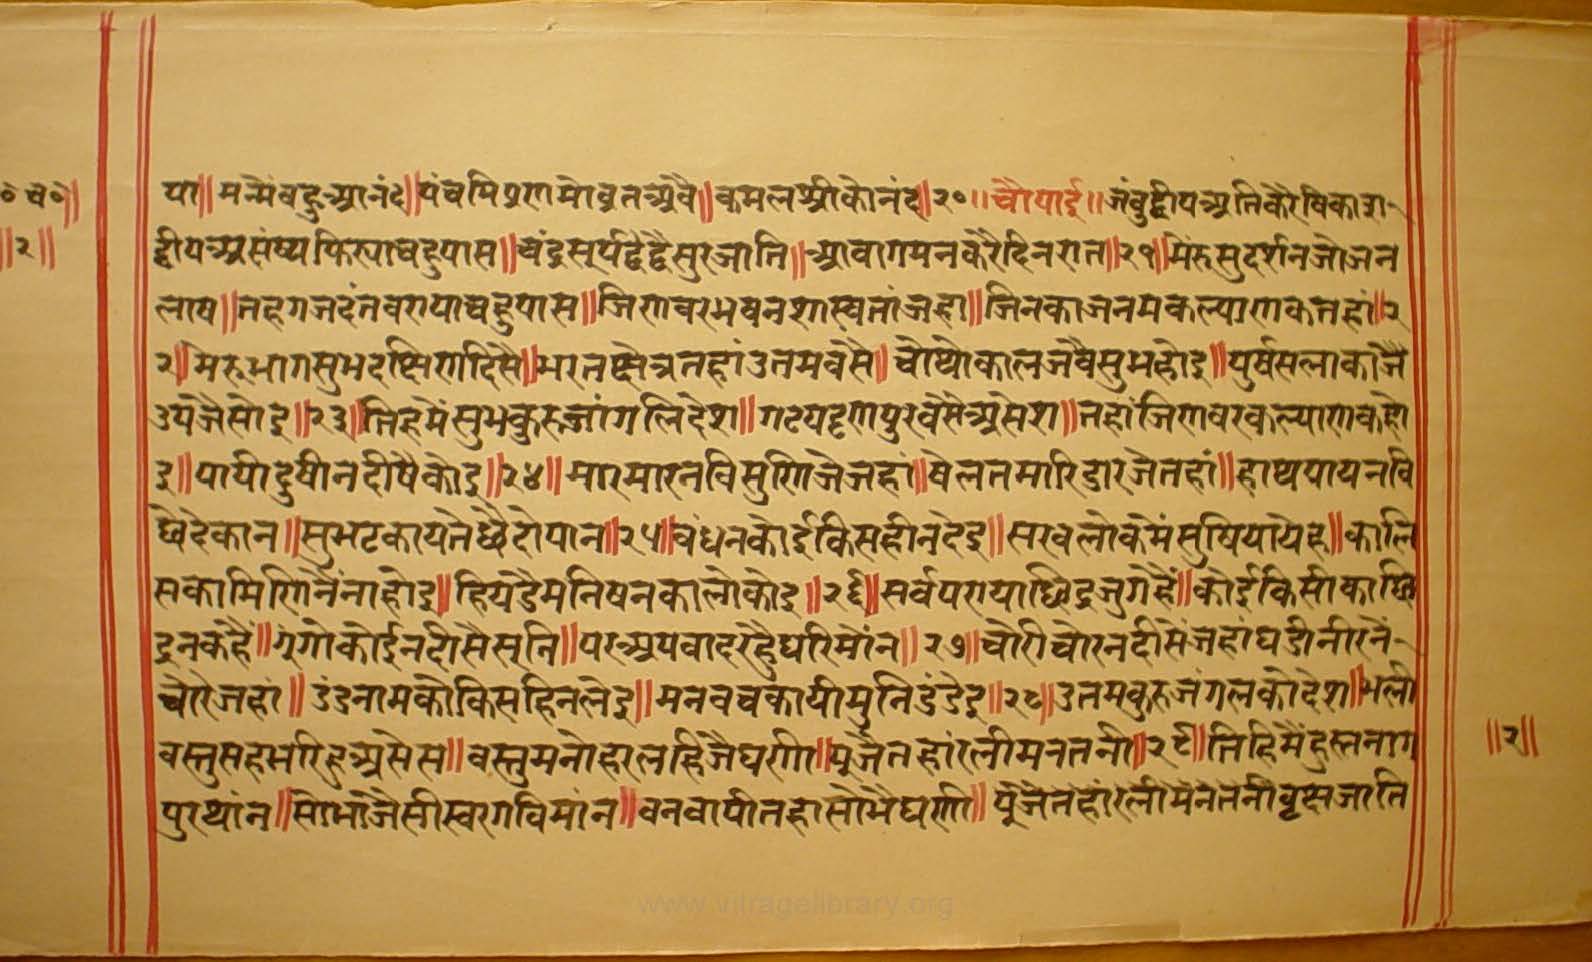 ० च० ॥
॥ २ ॥
पा ॥ मन्मैं बहु आनंद ॥ पंचमि प्रणमो व्रत अवै ॥ कमल श्रीको नंद ॥ २० ॥ चौपाई ॥ जंबुद्वीप अति करै षिकास
द्वीप असंष्य फिर्या चहु पास ॥ चंद्र सूर्य द्वै द्वै सुर जाति ॥ आवागमन करै दिन रात ॥ २१ ॥ मेरु सुदर्शन जोजन
लाष ॥ तह गजदंत वण्या चहु पास ॥ जिणवर भवन शास्वतां जहां ॥ जिन का जनम कल्याणक तहां ॥ २
२ ॥ मेरु भाग सुभ दक्षिण दिसै ॥ भरत क्षेत्र तहां उतम वसै ॥ चोथो काल जवै सुभ होइ ॥ पुर्ष सलाका जै
उपजै सोइ ॥ २३ ॥ तिह मैं सुभ कुरुजांगलि देश ॥ गढ पटृण पुर वसै असेश ॥ तहां जिणवर कल्याणक हो
इ ॥ पापी दुषी न दीषै कोइ ॥ २४ ॥ मार मार नवि सुणिजे जहां ॥ षेलत मारि डारजे तहां ॥ हाथ पाय नवि
छेदे कान ॥ सुभट काय ते छैदो पान ॥ २५ ॥ बंधन कोई किसही न देइ ॥ सरव लोक मैं सुषिया येह ॥ कालि
सका मिणि नैंना होइ ॥ हियडै मनिष न कालो कोइ ॥ २६ ॥ सर्व पराया छिद्र जु गहैं ॥ कोई किसी का छि
द्र न कहैं ॥ गुंगो कोई न दीसै सुनि ॥ पर अपवाद रहै धरि मौन ॥ २७ ॥ चोरी चोर न दीसे जहां घडी नीर नें
चोरे जहां ॥ डंड नाम को किसहि न लेइ ॥ मन वच काया मुनि डंडेइ ॥ २८ ॥ उतम कुरुजंगल को देश ॥ भली
वस्तु सह भरि हु असेस ॥ वस्तु मनोहर लहि जै घणी ॥ पूजै तहां रली मन तनी ॥ २९ ॥ तिहि मैं हस्तनाग
पुर थांन ॥ सोभा जैसी स्वरग विमांन ॥ वन वापी तहा सोभै घणी ॥ पूजै तहां रली मन तनी वृक्ष जाति
॥ २ ॥
www.vitragelibrary.org